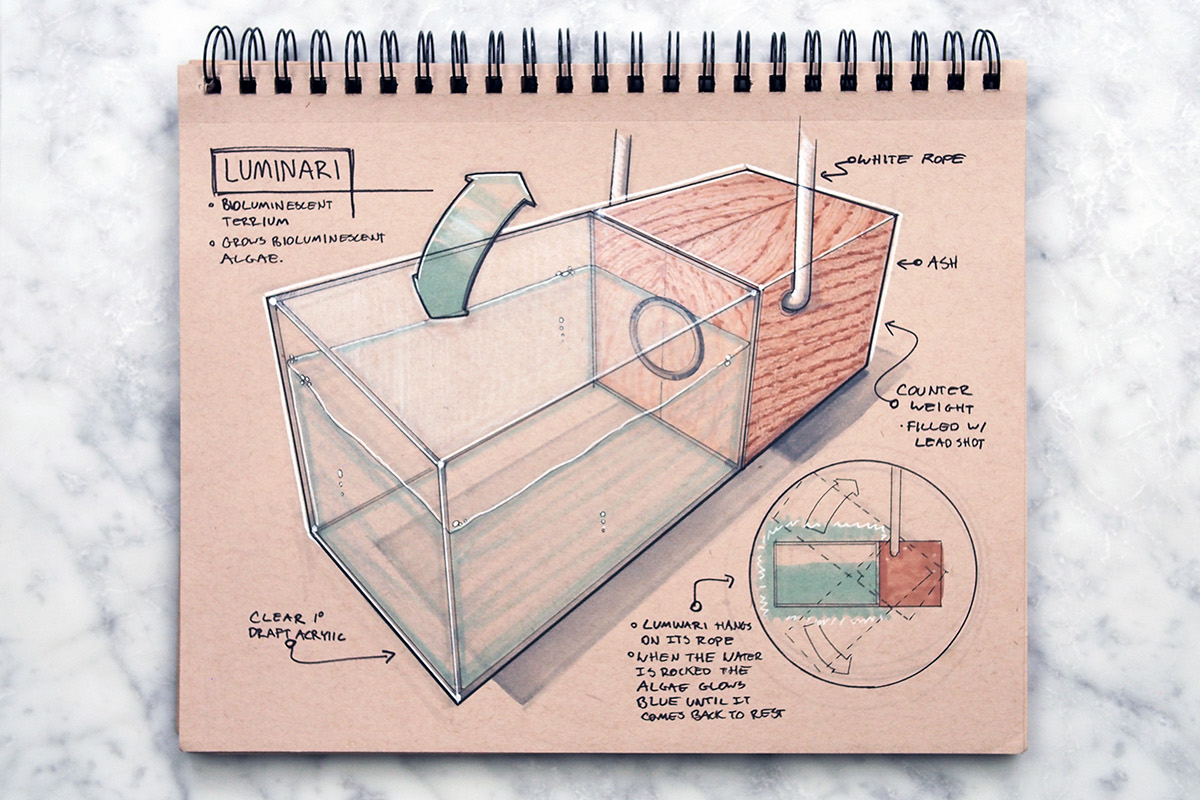 LUMINARI
• BIOLUMINESCENT
TERRIUM
• GROWS BIOLUMINESCENT
ALGAE.
WHITE ROPE
ASH
COUNTER
WEIGHT
• FILLED W/
LEAD SHOT
CLEAR 1°
DRAFT ACRYLIC
• LUMINARI HANGS
ON ITS ROPE
• WHEN THE WATER
IS ROCKED THE
ALGAE GLOWS
BLUE UNTIL IT
COMES BACK TO REST